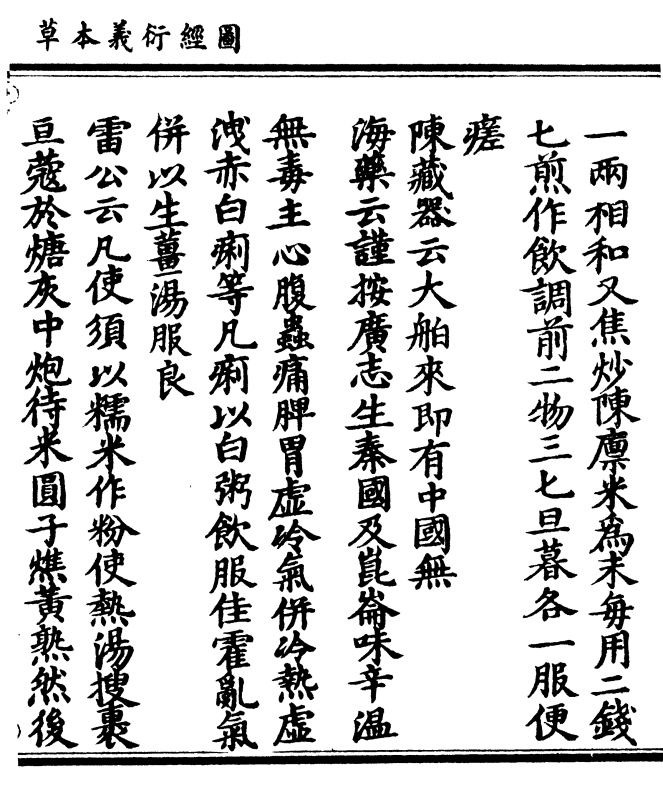 圖經衍義本草
一兩相和又焦炒陳廩米為末每用二錢
七煎作飲調前二物三七旦暮各一服便
瘥
陳藏器云大舶來即有中國無
海藥云謹按廣志生秦國及崑崙味辛温
無毒主心腹蟲痛脾胃虛冷氣併冷熱虛
洩赤白痢等凡痢以白粥飲服佳霍亂氣
併以生薑湯服良
雷公云凡使須以糯米作粉使熱湯搜裹
豆蔻於煻灰中炮待米團子燋黃熟然後